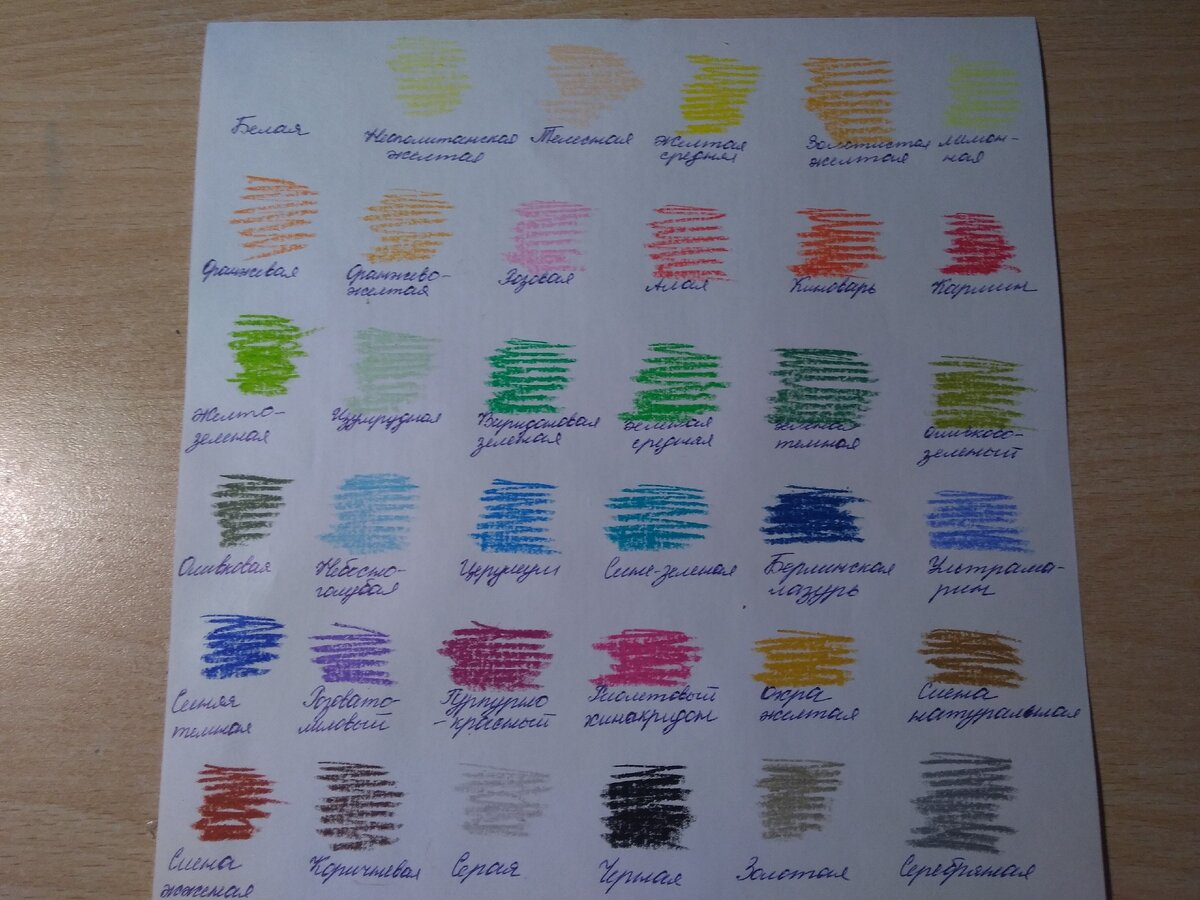 Белая
Неополитанская
желтая
Телесная
Желтая
средняя
Золотистая
желтая
Лимон-
ная
Оранжевая
Оранжево-
желтая
Розовая
Алая
Киноварь
Кармин
Желто-
зеленая
Изумрудная
Виридоновая
зеленая
Зеленая
средняя
Зелено
темная
Оливково-
зеленый
Оливковая
Небесно-
голубая
Церулеум
Сине-зеленая
Берлинская
лазурь
Ультрама-
рин
Синяя
темная
Розовато-
лиловый
Пурпурно
-красный
Фиолетовый
хинакридон
Охра
желтая
Сиена
натуральная
Сиена
жженая
Коричневая
Серая
Черная
Золотая
Серебряная